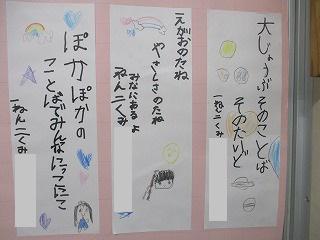 大じょうぶ そのことば
そのたいど
一ねん二くみ
えがおのたね
やさしさのたね
みなにあるよ
一ねん二くみ
ぽかぽかの
ことばでみんなにっこにこ
一ねん二くみ